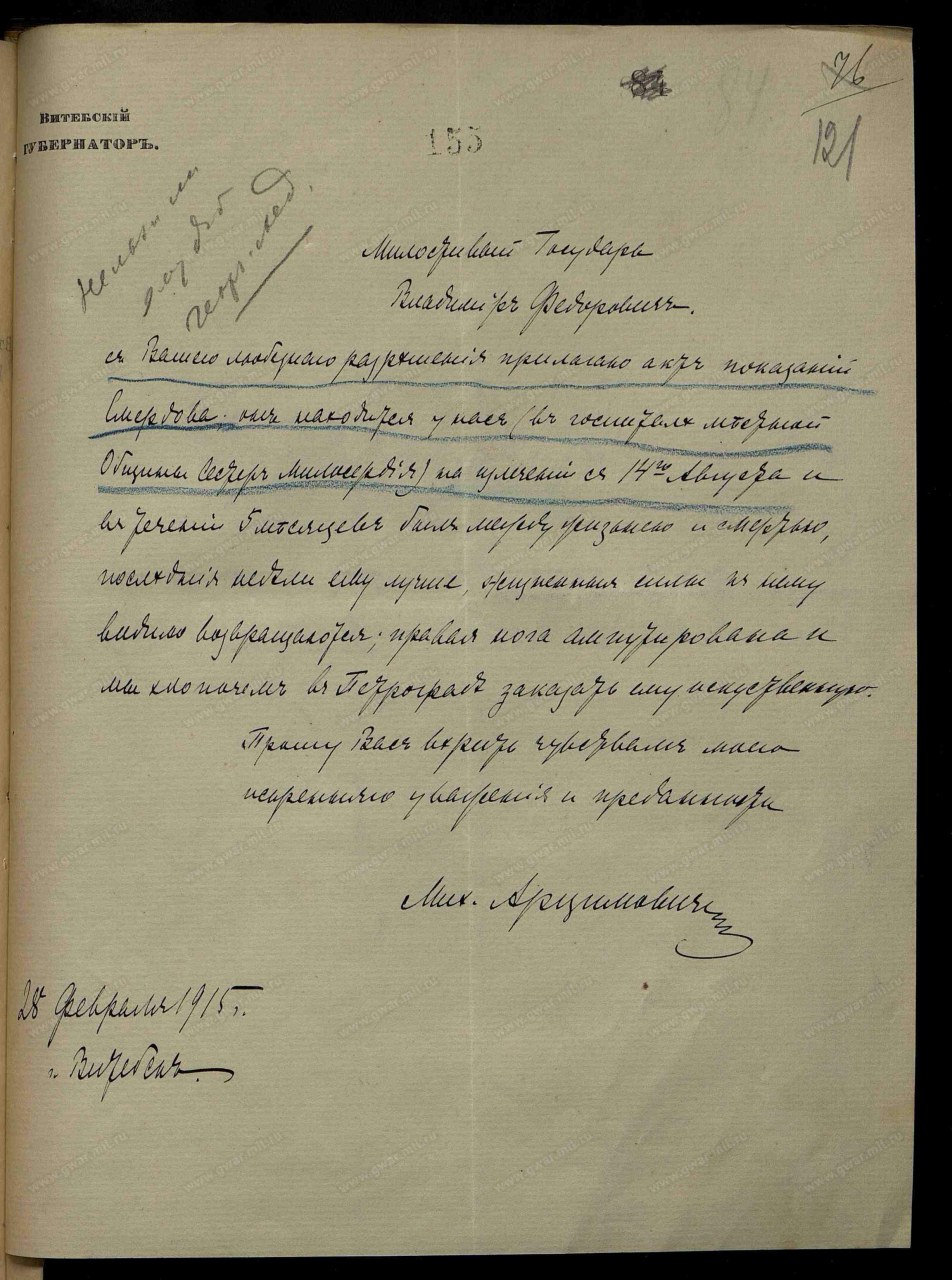 Витебскій
Губернаторъ.
76
155
121
Нельзя ли
георг. мед.
Милостивый Государь
Владиміръ Федоровичъ.
съ Вашего любезнаго разрѣшенія прилагаю актъ показаній
Смердова. онъ находится у насъ (въ госпиталѣ мѣстной
Общины Сестеръ Милосердія) на излеченіи съ 14го Августа и
въ теченіи 5 мѣсяцевъ былъ между жизнью и смертью,
послѣднія недѣли ему лучше, жизненныя силы къ нему
видимо возвращаются; правая нога ампутирована и
мы хлопочемъ въ Петроградѣ заказать ему искуственную.
Прошу Васъ вѣрить чувствамъ моего
искренняго уваженія и преданности
Мих. Арцимовичъ
28 Февраля 1915 г.
г. Витебскъ.